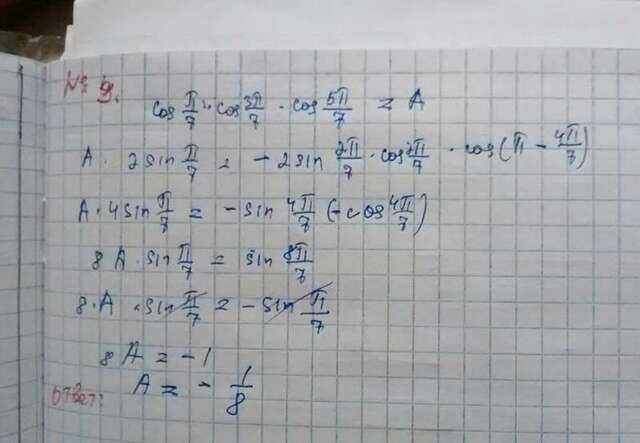 № 9.
cos π/7 · cos 3π/7 · cos 5π/7 = A
A · 2sin π/7 = - 2sin 2π/7 · cos 2π/7 · cos(π - 4π/7)
A · 4sin π/7 = - sin 4π/7 (-cos 4π/7)
8 A · sin π/7 = sin 8π/7
8 · A · sin π/7 = - sin π/7
8A = -1
Ответ: A = - 1/8